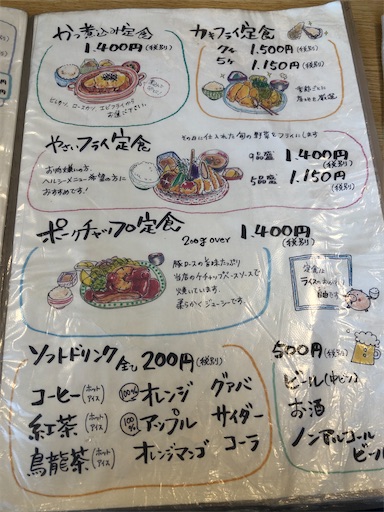 かつ煮込み定食
1.400円(税別)
ヒレカツ、ロースカツ、エビフライから
お選び下さい。
カキフライ定食
7ケ 1.500円(税別)
5ケ 1.150円(税別)
やさいフライ定食
その日に仕入れた旬の野菜をフライにします
お肉が嫌いの方、
ヘルシーメニュー希望の方に
おすすめです!
9品盛 1.400円(税別)
5品盛 1.150円(税別)
ポークチャップ定食
200g over 1.400円(税別)
豚ロースの旨味たっぷり
当店のケチャップベースソースで
焼いています。
柔らかくジューシーです。
定食は
ライスの
自由です
ソフトドリンク 全て200円(税別)
コーヒー(ホットアイス) 100% オレンジ グァバ
紅茶(ホットアイス) 100% アップル サイダー
烏龍茶(ホットアイス) オレンジマンゴ コーラ
500円(税別)
ビール(中ビン)
お酒
ノンアルコール
ビール